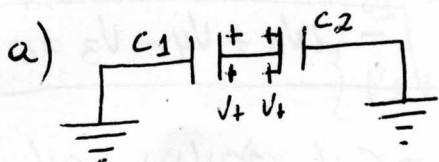 a) C1 C2
+ +
+ +
V+ V+